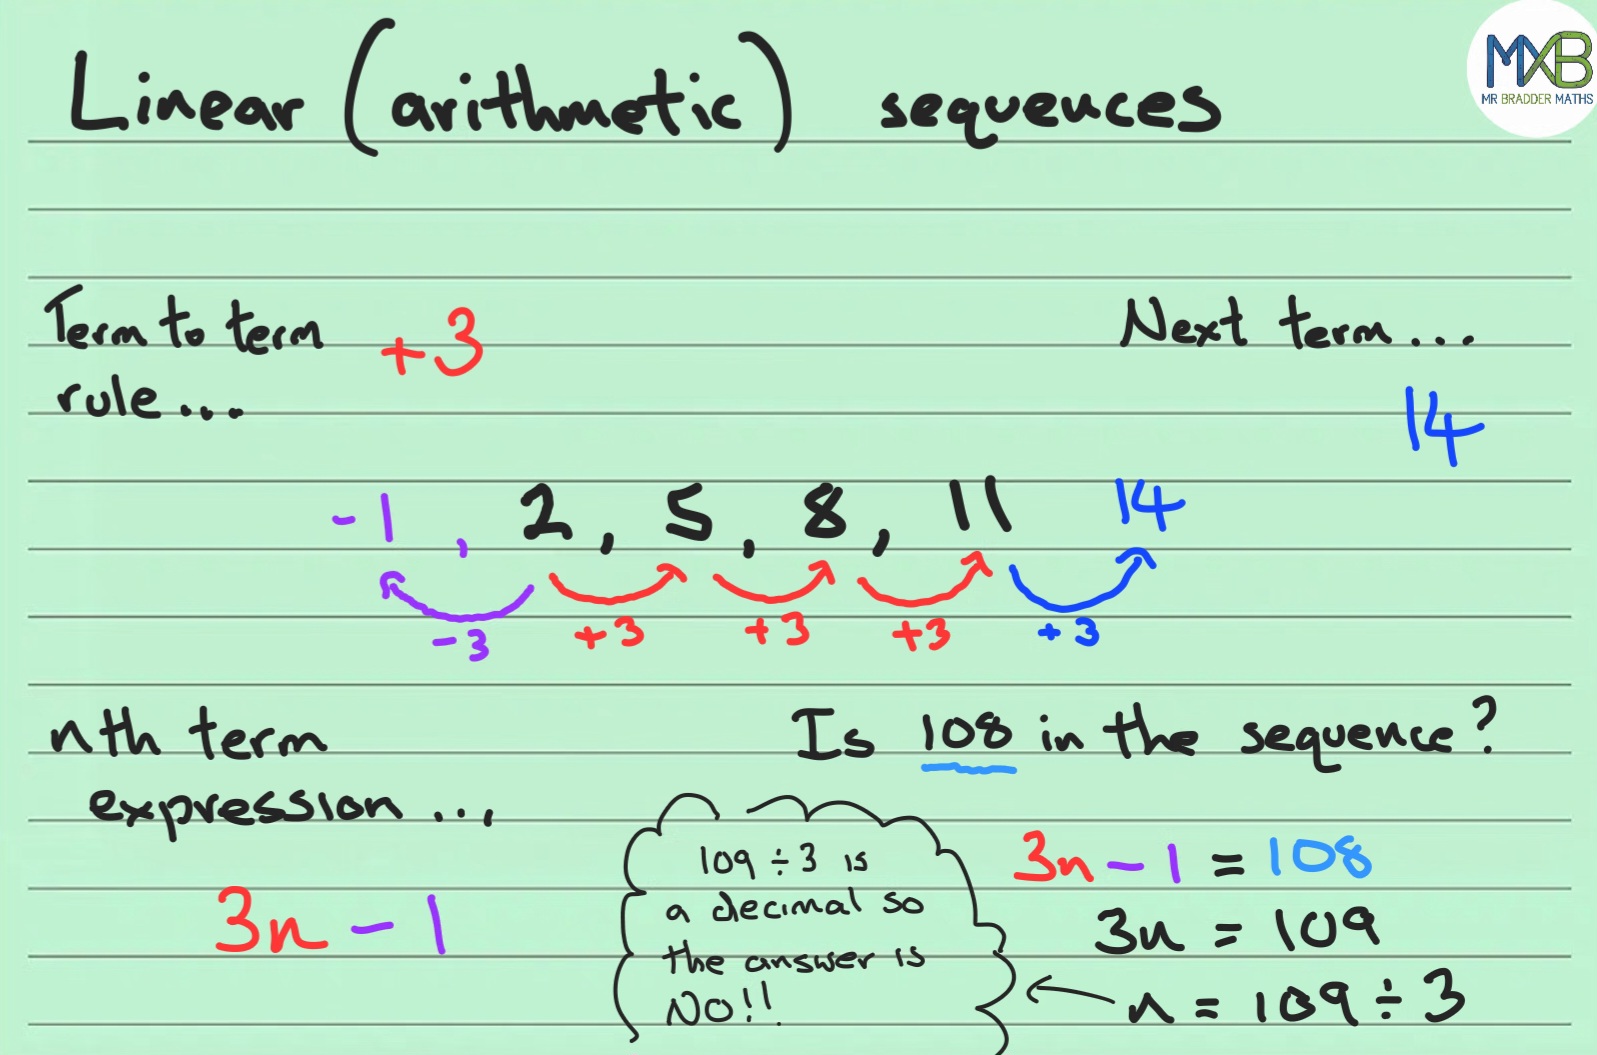 Linear (arithmetic) sequences
MXB
MR BRADDER MATHS
Term to term
rule...
+3
Next term...
14
-1, 2, 5, 8, 11 14
-3 +3 +3 +3 +3
nth term
expression...
3n - 1
Is 108 in the sequence?
3n - 1 = 108
3n = 109
n = 109 ÷ 3
109 ÷ 3 is
a decimal so
the answer is
NO!!